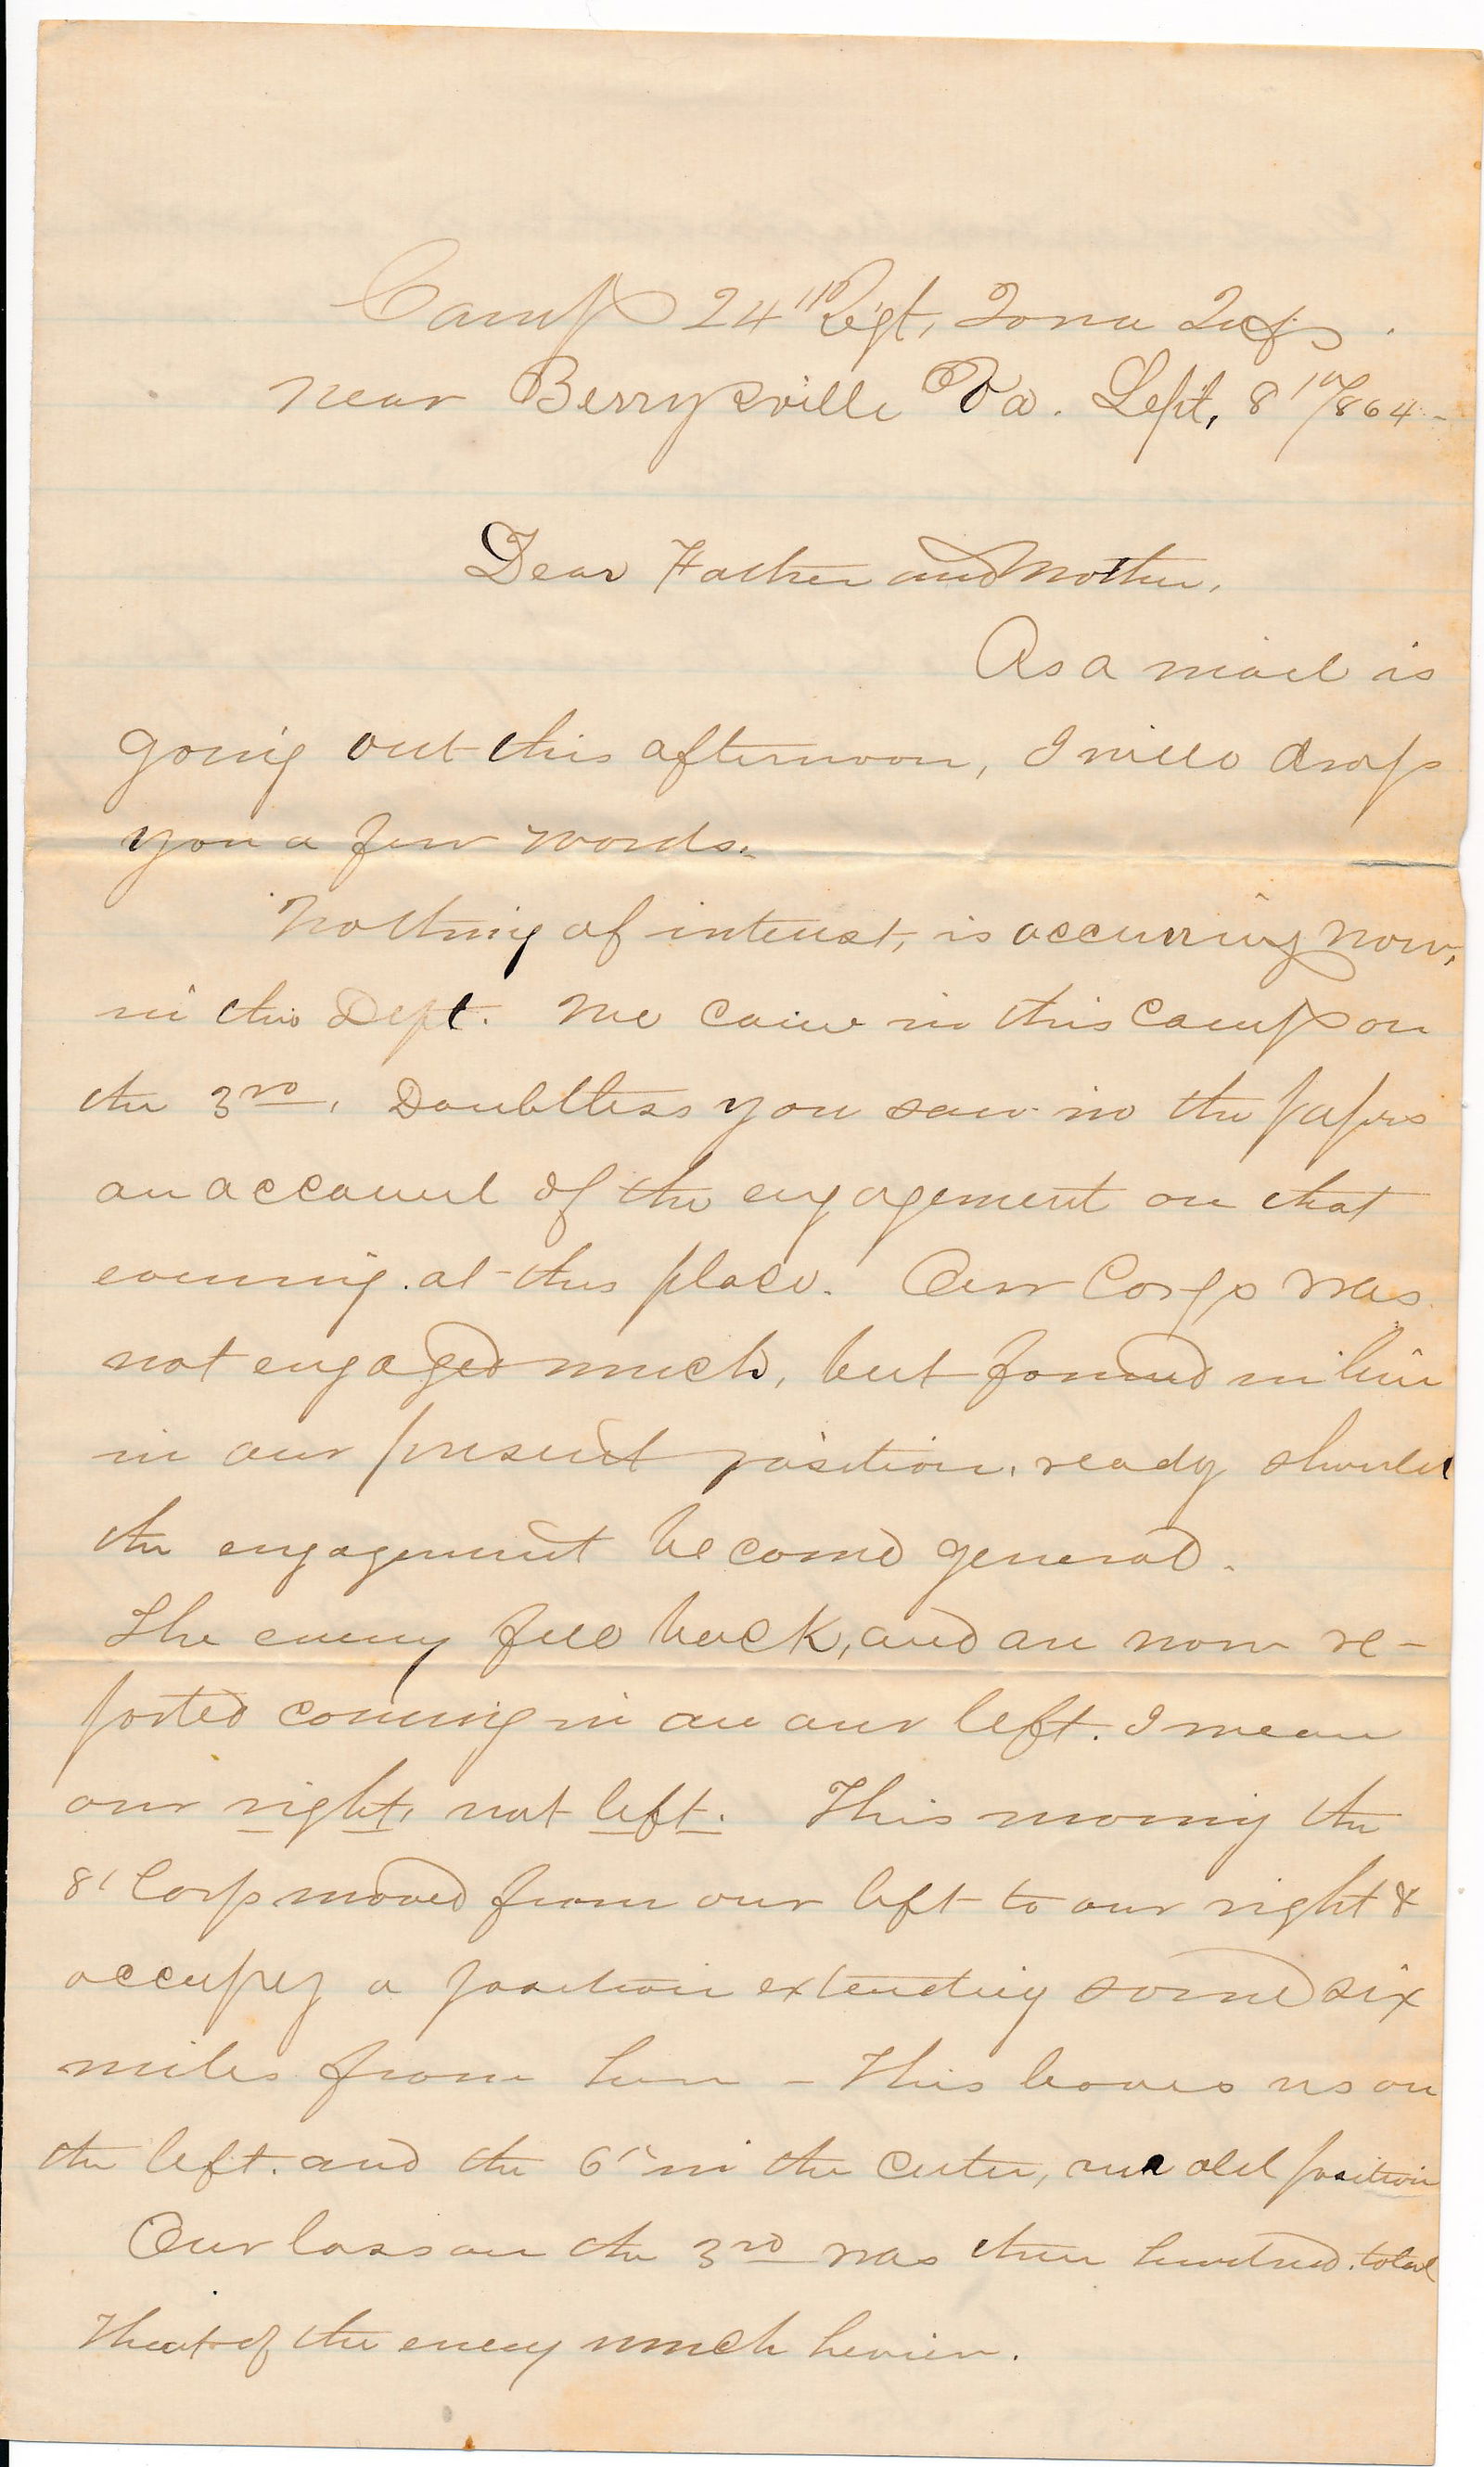 Camp 24th Regt, Iowa Infs.
near Berrysville Va. Sept, 8th/864-
Dear Father and Mother,
As a mail is
going out this afternoon, I will drop
you a few words.
Nothing of interest, is occurring now,
in this Dept. We came in this Camp on
the 3rd, Doubtless you saw in the papers
an account of the engagement on that
evening at this place. Our Corps was
not engaged much, but formed in line
in our present position, ready should
the engagement become general.
The enemy fell back, and are now re-
ported coming in on our left. I mean
our right, not left. This morning the
8' Corps moved from our left to our right &
occupy a position extending some six
miles from here - This leaves us on
the left. and the 6' in the center, our old position
Our loss on the 3rd was three hundred. total
That of the enemy much hevier.